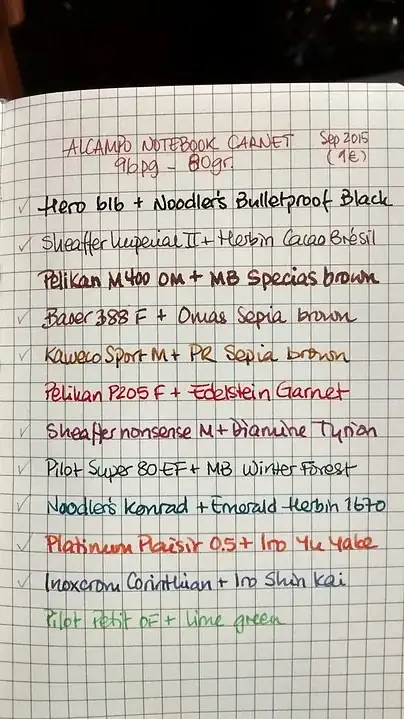 ALCAMPO NOTEBOOK CARNET Sep 2015
96pg - 80gr. (1€)
✓ Hero 616 + Noodler's Bulletproof Black
✓ Sheaffer Imperial II + Herbin Cacao Brésil
Pelikan M400 OM + MB Specias brown
✓ Baver 388 F + Omas Sepia brown
✓ Kaweco Sport M + PR Sepia brown
Pelikan P205 F + Edelstein Garnet
✓ Sheaffer nonsense M + Diamine Tyrian
✓ Pilot Super 80 EF + MB Winter Forest
✓ Noodler's Konrad + Emerald Herbin 1670
✓ Platinum Plaisir 0.5 + Iro Yu Yake
✓ Inoxcrom Corinthian + Iro Shin Kai
Pilot Petit OF + Lime green